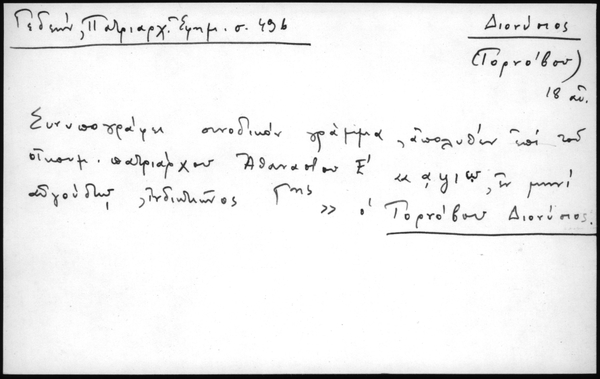 Γεδεών, Πατριαρχ. Ἐφημ. σ. 496
Διονύσιος
(Τόρνοβου)
18 αἰ.
Συνυπογράφει συνοδικόν γράμμα, ἀπολυθέν ἐπί τοῦ
οἰκουμ. πατριάρχου Ἀθανασίου Ε΄ κ αψιῳ, ἐν μηνί
αὐγούστῳ, ἰνδικτιῶνος Γης
>> ὁ Τορνόβου Διονύσιος.